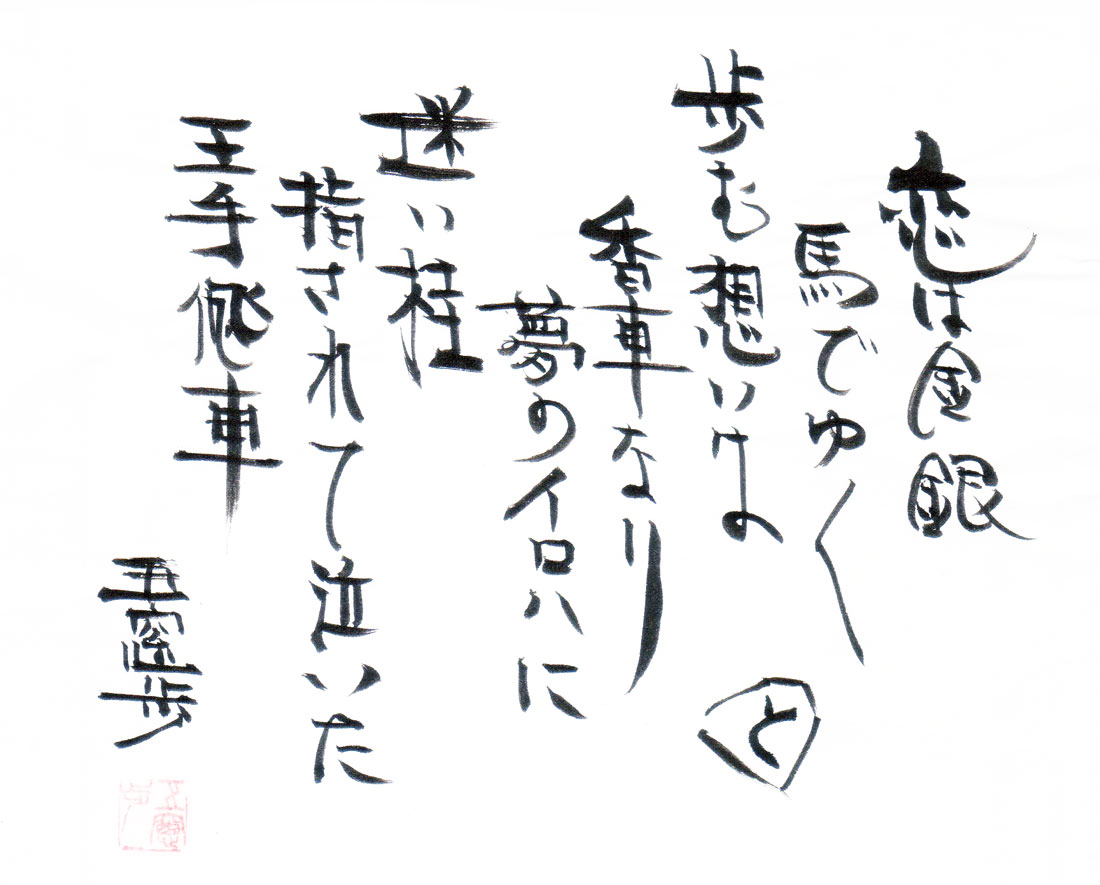 恋は金銀
馬でゆく
歩む想いは と
香車なり
夢のイロハに
迷い桂
指されて泣いた
王手飛車